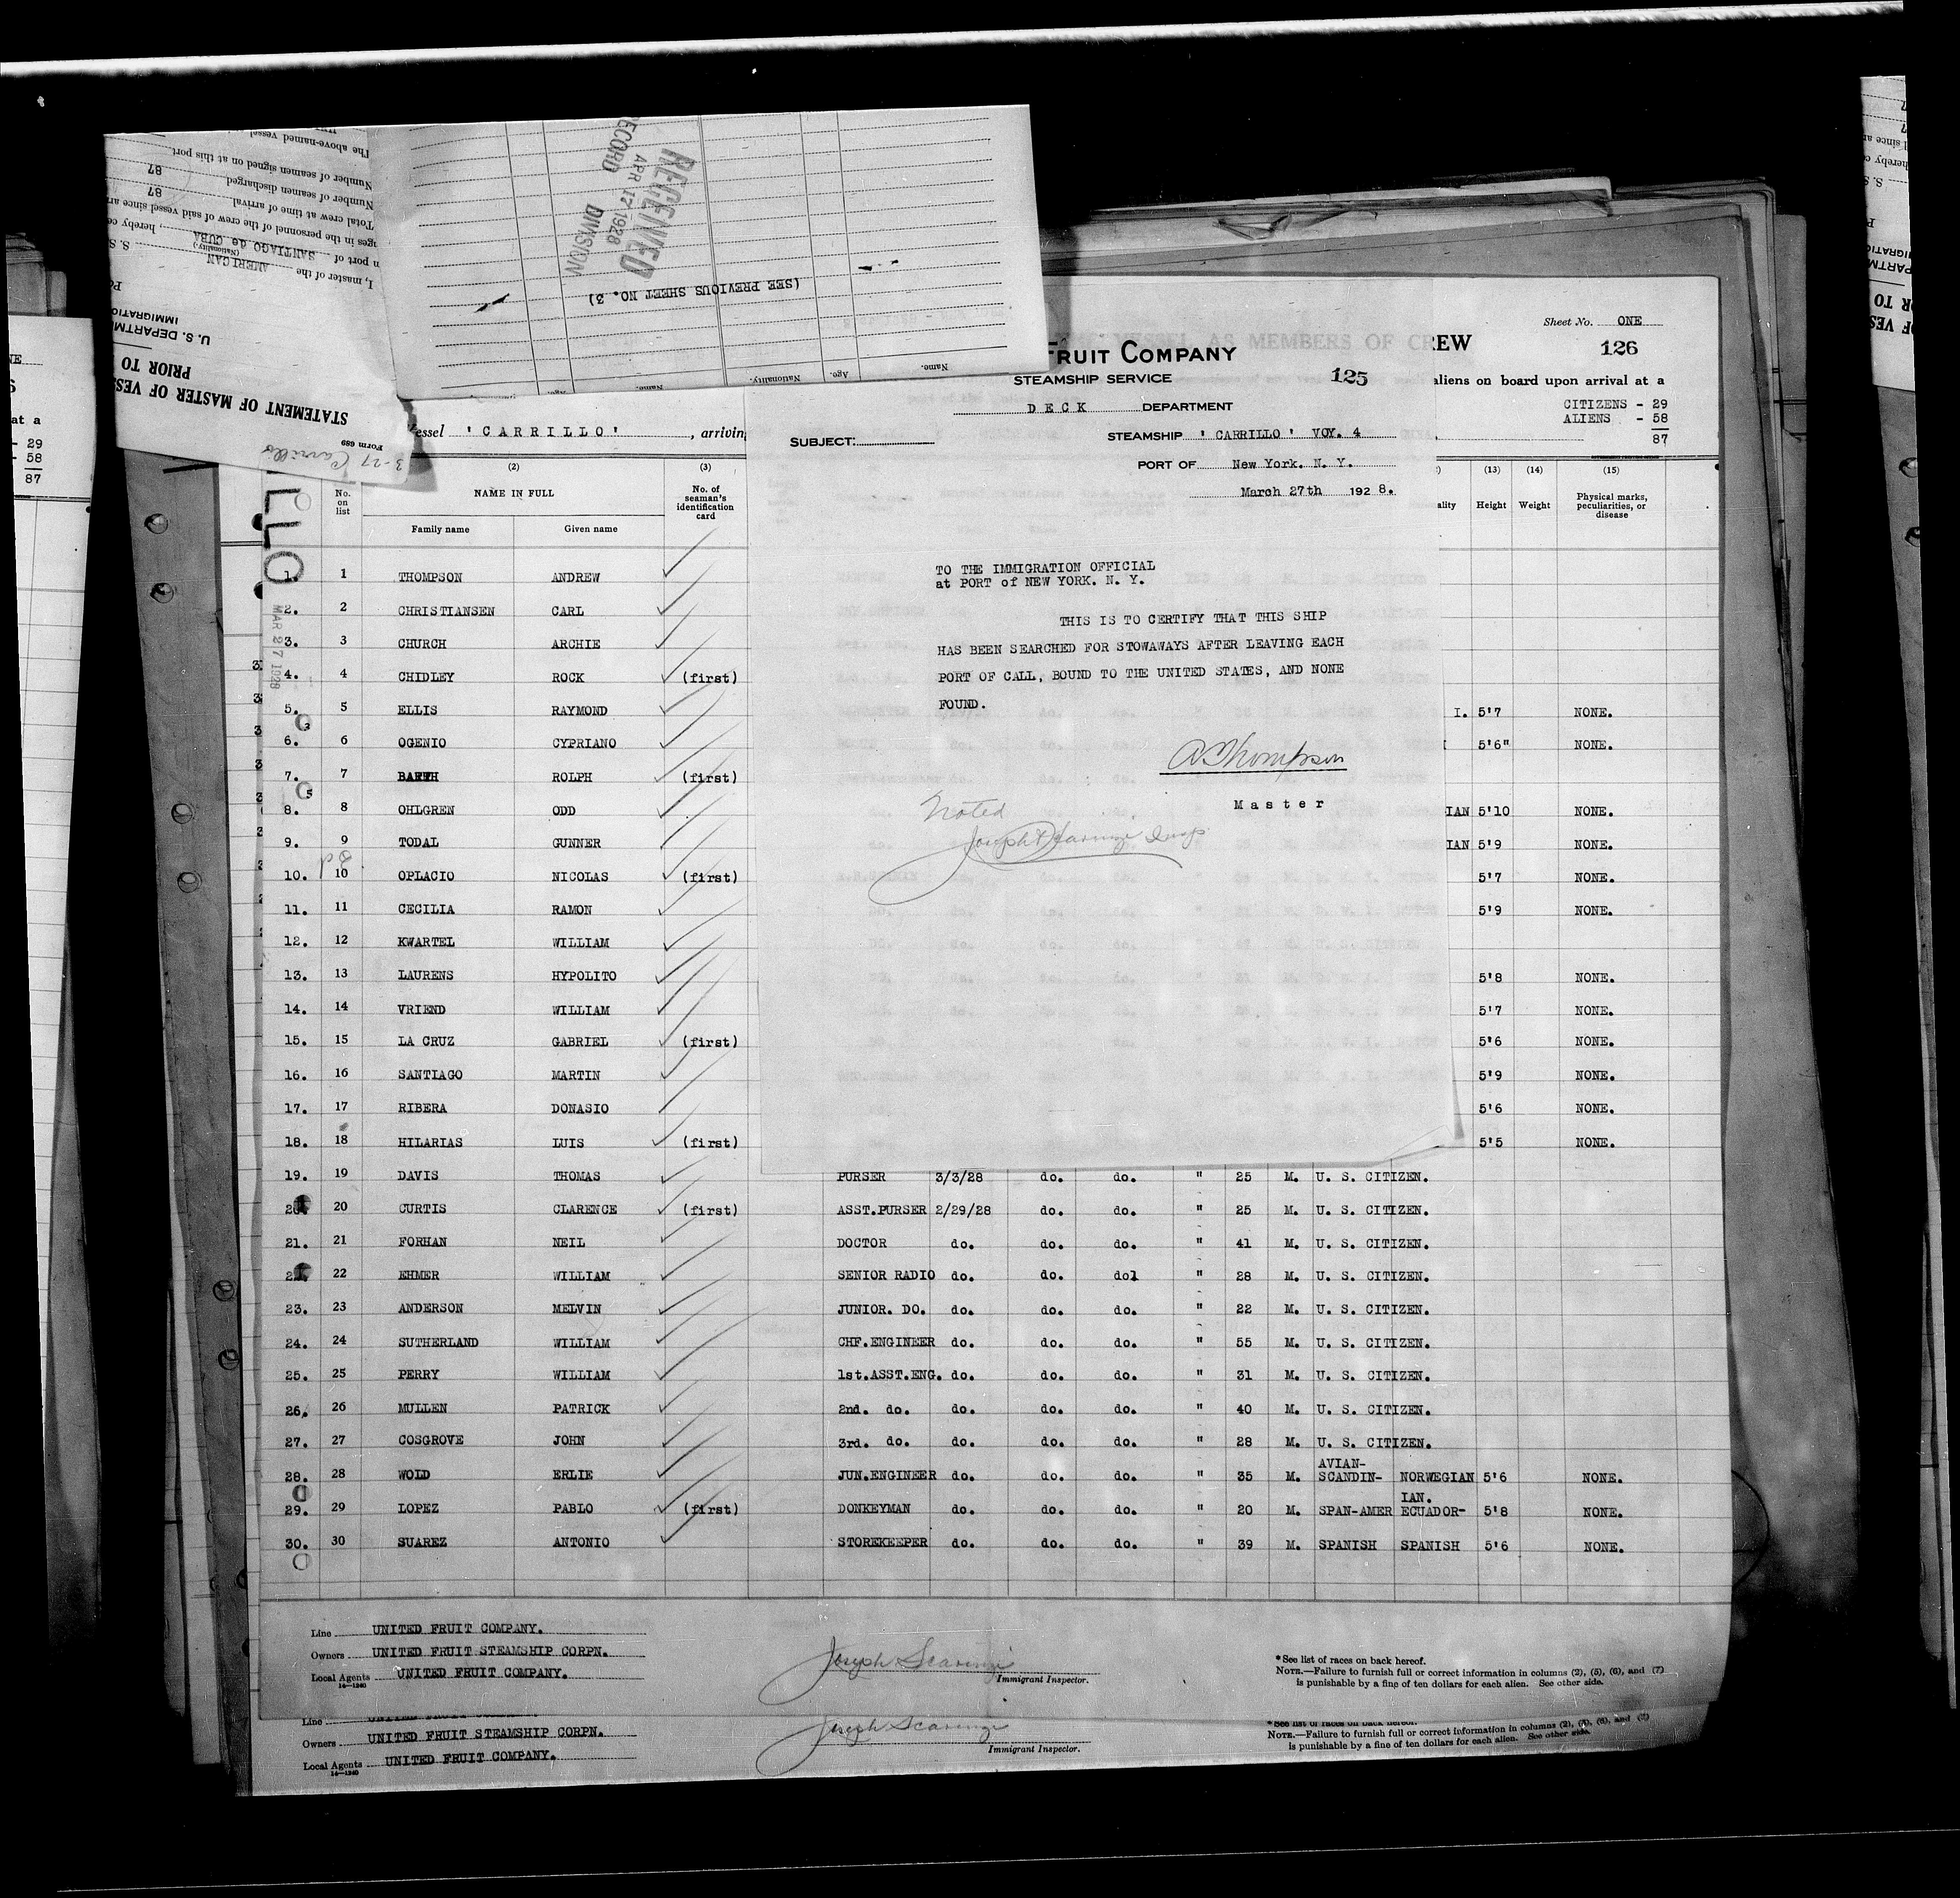 The above-named vessel
Number of seamen signed on at this port
Number of seamen discharged 87
Total crew at time of arrival 87
ges in the personnel of the crew of said vessel since ar
n port of SANTIAGO de CUBA, hereby ce
(Nationality)
I, master of the AMERICAN S. S.
U. S. DEPARTME
IMMIGRATION
PRIOR TO
STATEMENT OF MASTER OF VES
Form 689
3-27 Carrillo
RECEIVED
APR 17 1928
RECORD DIVISION
(SEE PREVIOUS SHEET NO. 3)
Name. Age. Nationality. Name.
FRUIT COMPANY
STEAMSHIP SERVICE 125
DECK DEPARTMENT
SUBJECT: STEAMSHIP 'CARRILLO' VOY. 4
PORT OF New York. N. Y.
March 27th 1928.
TO THE IMMIGRATION OFFICIAL
at PORT of NEW YORK. N. Y.
THIS IS TO CERTIFY THAT THIS SHIP
HAS BEEN SEARCHED FOR STOWAWAYS AFTER LEAVING EACH
PORT OF CALL, BOUND TO THE UNITED STATES, AND NONE
FOUND.
A Thompson
Master
Noted
Joseph Scaringi Insp
VESSEL AS MEMBERS OF CREW
Sheet No. ONE
126
aliens on board upon arrival at a
CITIZENS - 29
ALIENS - 58
87
Vessel 'CARRILLO', arriving
LLO
MAR 27 1928
(2) (3) (13) (14) (15)
No. on list NAME IN FULL No. of seaman's identification card ality Height Weight Physical marks, peculiarities, or disease
Family name Given name
1. 1 THOMPSON ANDREW
2. 2 CHRISTIANSEN CARL
3. 3 CHURCH ARCHIE
4. 4 CHIDLEY ROCK (first)
5. 5 ELLIS RAYMOND I. 5'7 NONE.
6. 6 OGENIO CYPRIANO 5'6" NONE.
7. 7 BARTH ROLPH (first)
8. 8 OHLGREN ODD IAN 5'10 NONE.
9. 9 TODAL GUNNER IAN 5'9 NONE.
10. 10 OPLACIO NICOLAS (first) 5'7 NONE.
11. 11 CECILIA RAMON 5'9 NONE.
12. 12 KWARTEL WILLIAM
13. 13 LAURENS HYPOLITO 5'8 NONE.
14. 14 VRIEND WILLIAM 5'7 NONE.
15. 15 LA CRUZ GABRIEL (first) 5'6 NONE.
16. 16 SANTIAGO MARTIN 5'9 NONE.
17. 17 RIBERA DONASIO 5'6 NONE.
18. 18 HILARIAS LUIS (first) 5'5 NONE.
19. 19 DAVIS THOMAS PURSER 3/3/28 do. do. " 25 M. U. S. CITIZEN.
20 20 CURTIS CLARENCE (first) ASST.PURSER 2/29/28 do. do. " 25 M. U. S. CITIZEN.
21. 21 FORHAN NEIL DOCTOR do. do. do. " 41 M. U. S. CITIZEN.
22 22 EHMER WILLIAM SENIOR RADIO do. do. dol " 28 M. U. S. CITIZEN.
23. 23 ANDERSON MELVIN JUNIOR. DO. do. do. do. " 22 M. U. S. CITIZEN.
24. 24 SUTHERLAND WILLIAM CHF.ENGINEER do. do. do. " 55 M. U. S. CITIZEN.
25. 25 PERRY WILLIAM 1st.ASST.ENG. do. do. do. " 31 M. U. S. CITIZEN.
26. 26 MULLEN PATRICK 2nd. do. do. do. do. " 40 M. U. S. CITIZEN.
27. 27 COSGROVE JOHN 3rd. do. do. do. do. " 28 M. U. S. CITIZEN.
28. 28 WOLD ERLIE JUN.ENGINEER do. do. do. " 35 M. AVIAN- SCANDIN- NORWEGIAN 5'6 NONE.
29. 29 LOPEZ PABLO (first) DONKEYMAN do. do. do. " 20 M. SPAN-AMER IAN. ECUADOR- 5'8 NONE.
30. 30 SUAREZ ANTONIO STOREKEEPER do. do. do. " 39 M. SPANISH SPANISH 5'6 NONE.
Line UNITED FRUIT COMPANY.
Owners UNITED FRUIT STEAMSHIP CORPN.
Local Agents UNITED FRUIT COMPANY.
14-1240
Joseph Scaringi
Immigrant Inspector.
*See list of races on back hereof.
NOTE.—Failure to furnish full or correct information in columns (2), (5), (6), and (7)
is punishable by a fine of ten dollars for each alien. See other side.
Line UNITED FRUIT COMPANY.
Owners UNITED FRUIT STEAMSHIP CORPN.
Local Agents UNITED FRUIT COMPANY.
14-1240
Joseph Scaringi
Immigrant Inspector.
*See list of races on back hereof.
NOTE.—Failure to furnish full or correct information in columns (2), (5), (6), and (7)
is punishable by a fine of ten dollars for each alien. See other side.
at a
- 29
- 58
87